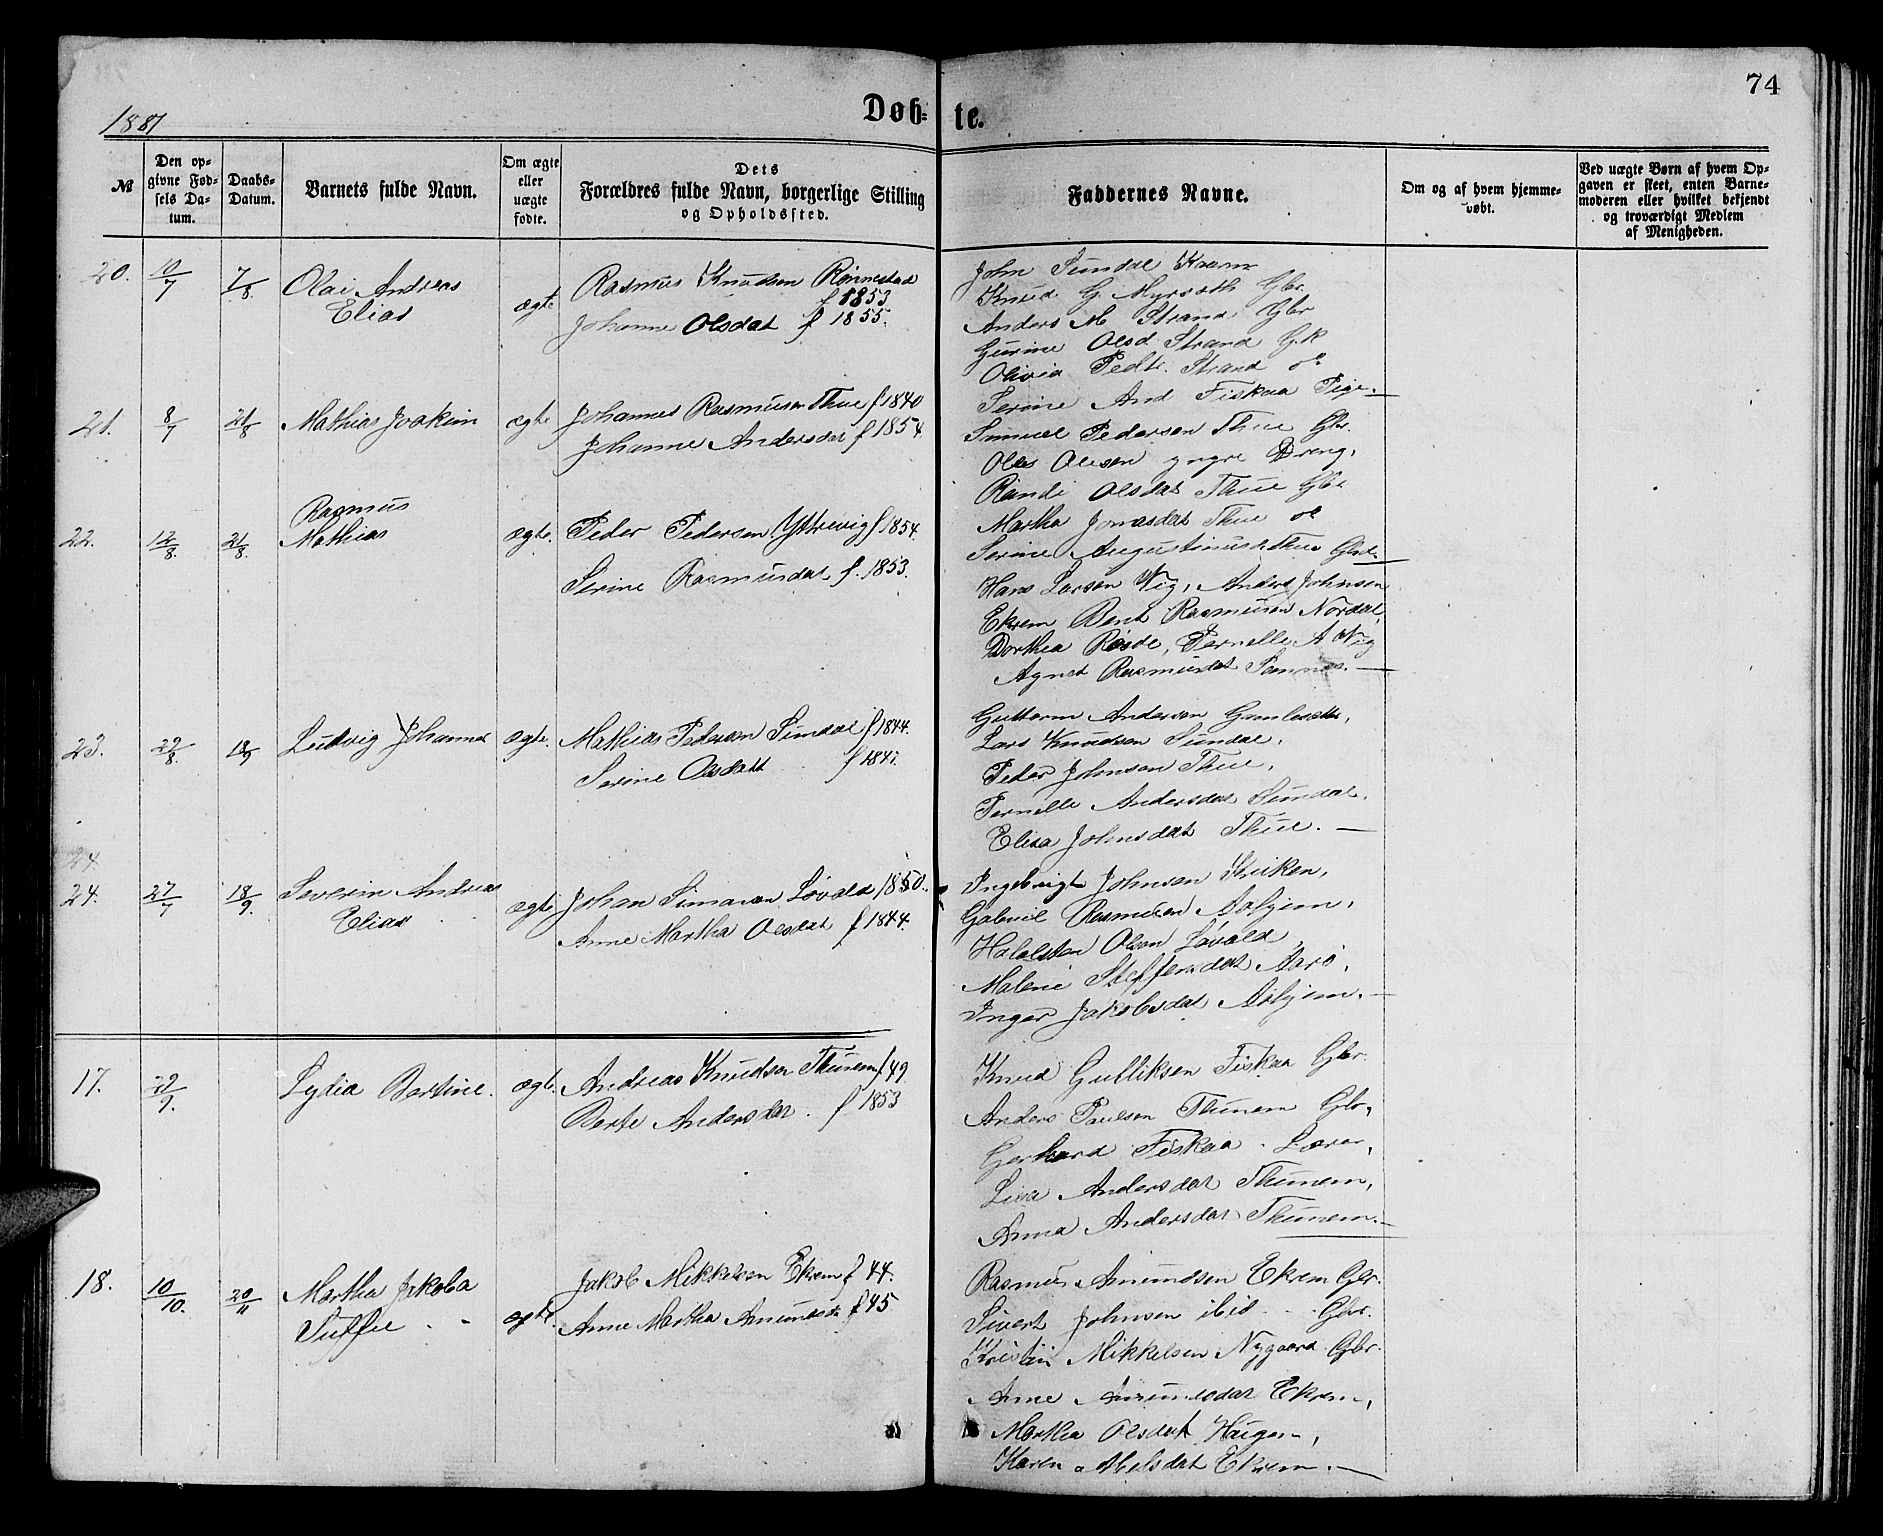 74
1881
Døb-te.
№
Den opgivne Fødsels Datum.
Daabs-Datum.
Barnets fulde Navn.
Om ægte eller uægte fødte.
Dets Forældres fulde Navn, borgerlige Stilling og Opholdssted.
Faddernes Navne.
Om og af hvem hjemmedøbt.
Ved uægte Børn af hvem Opgaven er skeet, enten Barnemoderen eller hvilket bekjendt og troværdigt Medlem af Menigheden.
20. 10/7 7/8 Olai Andreas Elias ægte
Rasmus Knudsen Rønnestad f 1853
Johanne Olsdat f 1855.
John Sundal
Knud G. Myrsæth Gbr.
Anders M Strand Gbr
Gurine Olsd Strand G.K
Olivia Pedt. Strand
Serine And Fiskaa Pige
21. 8/7 21/8 Mathias Joakim ægte
Johannes Rasmusen Thue f 1840
Johanne Andersdat f 1854
Samuel Pedersen Thue Gbr.
Ole Olesen yngre Dreng,
Randi Olsdat Thue
Martha Jonasdat Thue
Serine Augustinusd. Thue
22. 12/8. 21/8 Rasmus Mathias ægte.
Peder Pedersen Yttrevig f 1854.
Serine Rasmusdat f. 1853.
Hans Larsen Vig, Anders Johnsen
Ekrem Bent Rasmusen Nordal,
Dorthea Røsde, Pernelle A Vig
Agnet Rasmusdat
23. 29/8. 18/9 Ludvig Johannes ægte.
Mathias Pedersen Sundal f 1844.
Serine Olsdatt f 1841.
Guttorm Andersen
Lars Knudsen Sundal,
Peder Johnsen Thue,
Pernelle Andersdat Sundal,
Elisa Johnsdat Thue.
24
24. 27/7 18/9. Severin Andreas Elias ægte
Johan Simonsen Løvold 1850.
Anne Martha Olsdat f 1844.
Ingebrigt Johnsen
Gabriel Rasmusen Aahjem,
Olsen Løvold,
Malene Steffensdat Aarø,
Inger Jakobsdat Aahjem.
17. 29/9. Lydia Bertine. ægte.
Andreas Knudsen Thunem f 49
Berte Andersdat. f 1853
Knud Gulliksen Fiskaa Gbr.
Anders Paulsen Thunem Gbr.
Gerhard Fiskaa. Lærer,
Lisa Andersdat Thunem,
Anna Andersdat Thunem.
18. 10/10. 20/11 Martha Jakoba ægte.
Jakob Mikkelsen Ekrem f 44.
Anne Martha Amundsdt f 45
Rasmus Amundsen Ekrem Gbr.
Sivert Johnsen ibid Gbr.
Kristin Mikkelsen Nygaard Gbr.
Anne Amundsdat Ekrem,
Martha Olsdat Haugen,
Karen Abelsdat Ekrem.